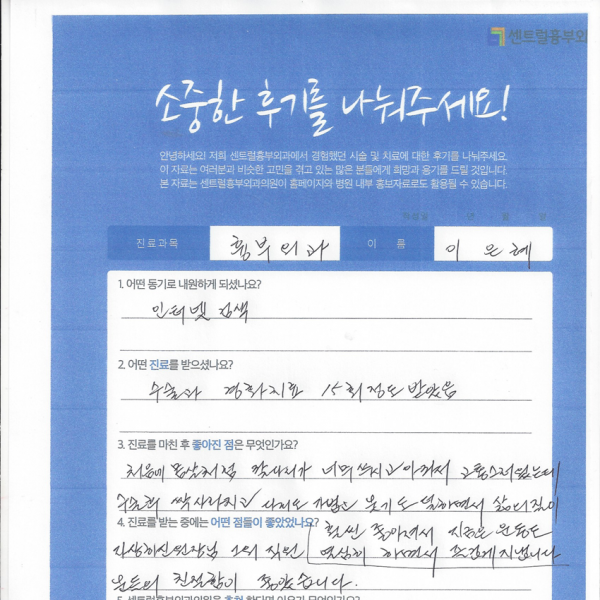 센트럴흉부외
소중한 후기를 나눠주세요!
안녕하세요! 저희 센트럴흉부외과에서 경험했던 시술 및 치료에 대한 후기를 나눠주세요.
이 자료는 여러분과 비슷한 고민을 겪고 있는 많은 분들에게 희망과 용기를 드릴 것입니다.
본 자료는 센트럴흉부외과의원이 홈페이지와 병원 내부 홍보자료로도 활용될 수 있습니다.
년 월 일
진료과목 흉부외과 이 름 이은혜
1. 어떤 동기로 내원하게 되셨나요?
인터넷 검색
2. 어떤 진료를 받으셨나요?
수술과 경화치료 15회정도 받았음
3. 진료를 마친 후 좋아진 점은 무엇인가요?
처음에 몸살처럼 팔다리가 너무 쑤시고 아파서 고통스러웠는데
수술후 싹 사라지고 다리도 가볍고 붓기도 덜하면서 삶의 질이
4. 진료를 받는 중에는 어떤 점들이 좋았었나요?
훨씬 좋아져서 지금은 운동도
자상하신 원장님 그외 직원
열심히 하면서 즐겁게 지냅니다
분들의 친절함이 좋았습니다.
5. 센트럴흉부외과의원을 추천한다면 이유가 무엇인가요?